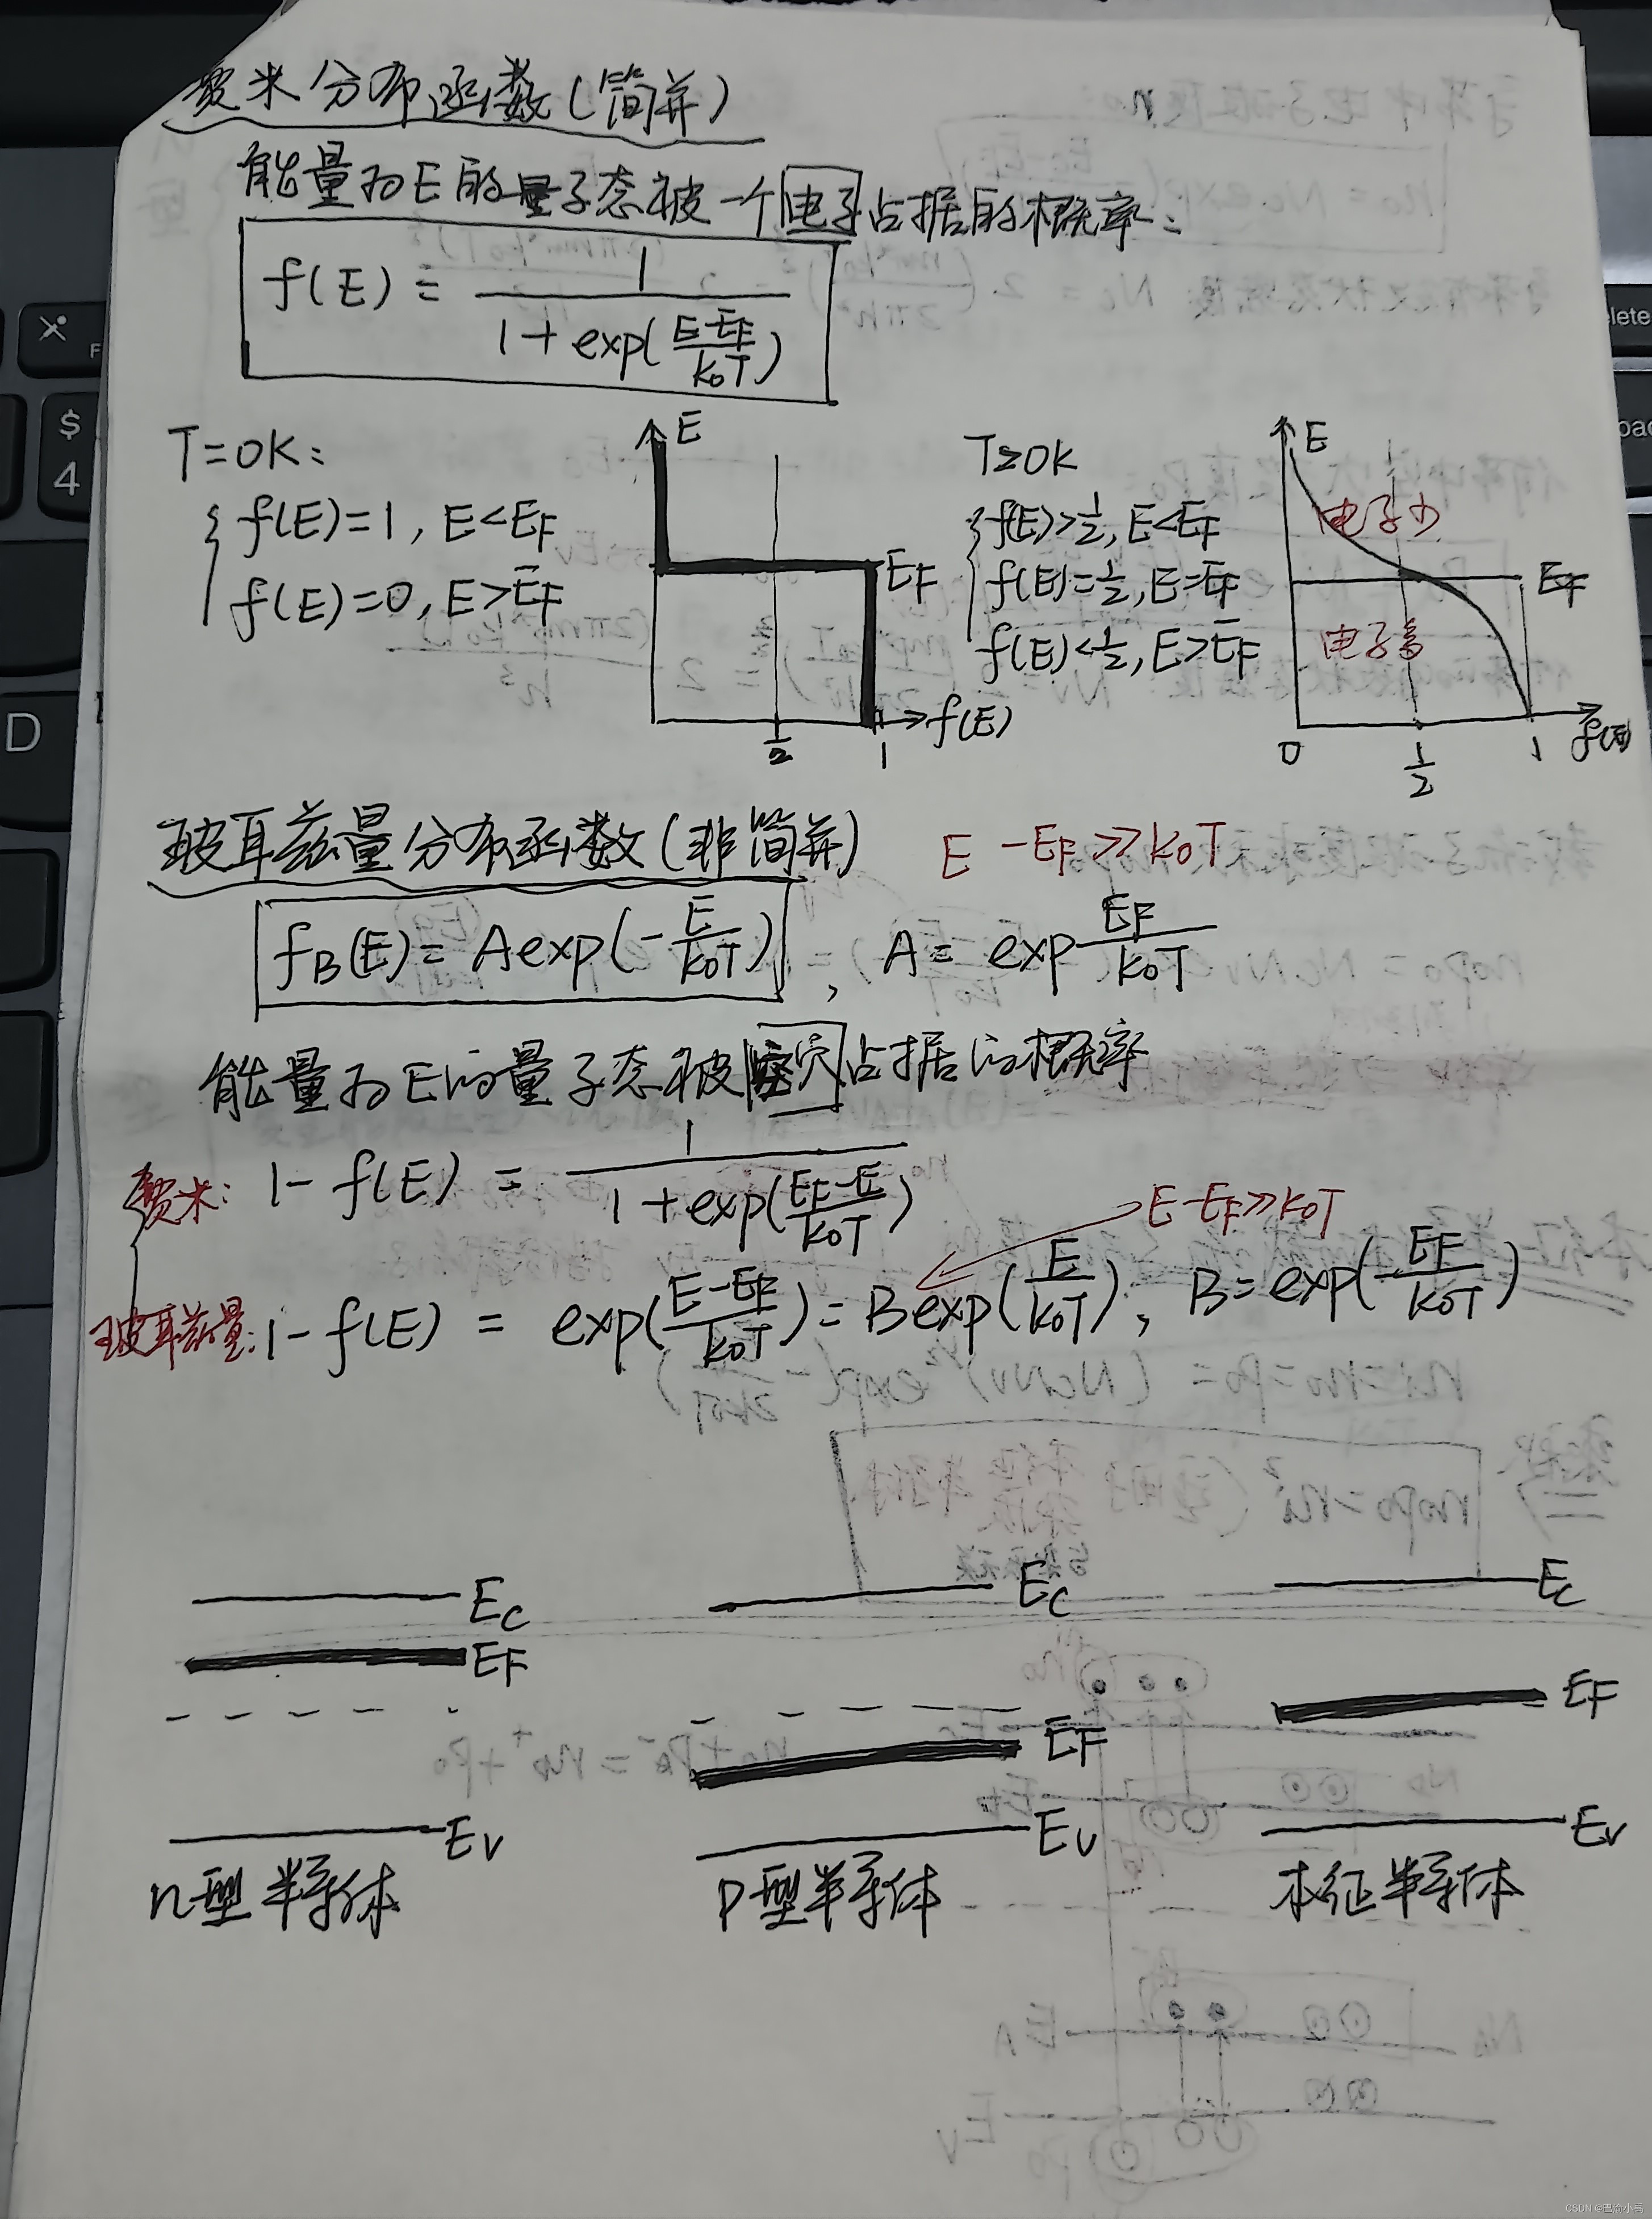 费米分布函数(简并)
能量为E的量子态被一个电子占据的概率:
f(E) = 1/(1+exp((E-EF)/k0T))
T=0K:
f(E)=1, E<EF
f(E)=0, E>EF
E
EF
1/2
1
f(E)
T≥0K
f(E)>1/2, E<EF
f(E)=1/2, E=EF
f(E)<1/2, E>EF
E
电子少
EF
电子多
0
1/2
1
f(E)
玻耳兹量分布函数(非简并) E-EF≫k0T
fB(E)=Aexp(-E/k0T), A=exp EF/k0T
能量为E的量子态被空穴占据的概率
费米: 1-f(E) = 1/(1+exp((EF-E)/k0T))
E-EF≫k0T
玻耳兹量: 1-f(E) = exp((E-EF)/k0T) = Bexp(E/k0T), B=exp(-EF/k0T)
EC
EF
EV
n型半导体
EC
EF
EV
P型半导体
EC
EF
EV
本征半导体
$
4
D
F
CSDN @巴渝小禹